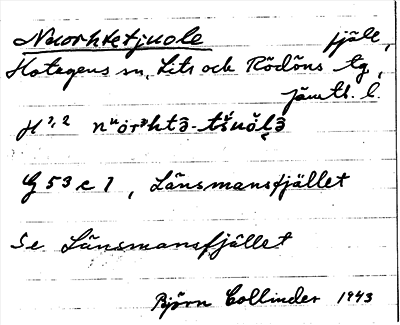 Nuorhtetjuole fjäll,
Hotagens sn, Lits och Rödöns tg,
jämtl. l.
H 1, 2 nᵘorᵊhtə̄-tš́uŏlə̄
G 53 c 1, Länsmansfjället
Se Länsmansfjället
Björn Collinder 1943